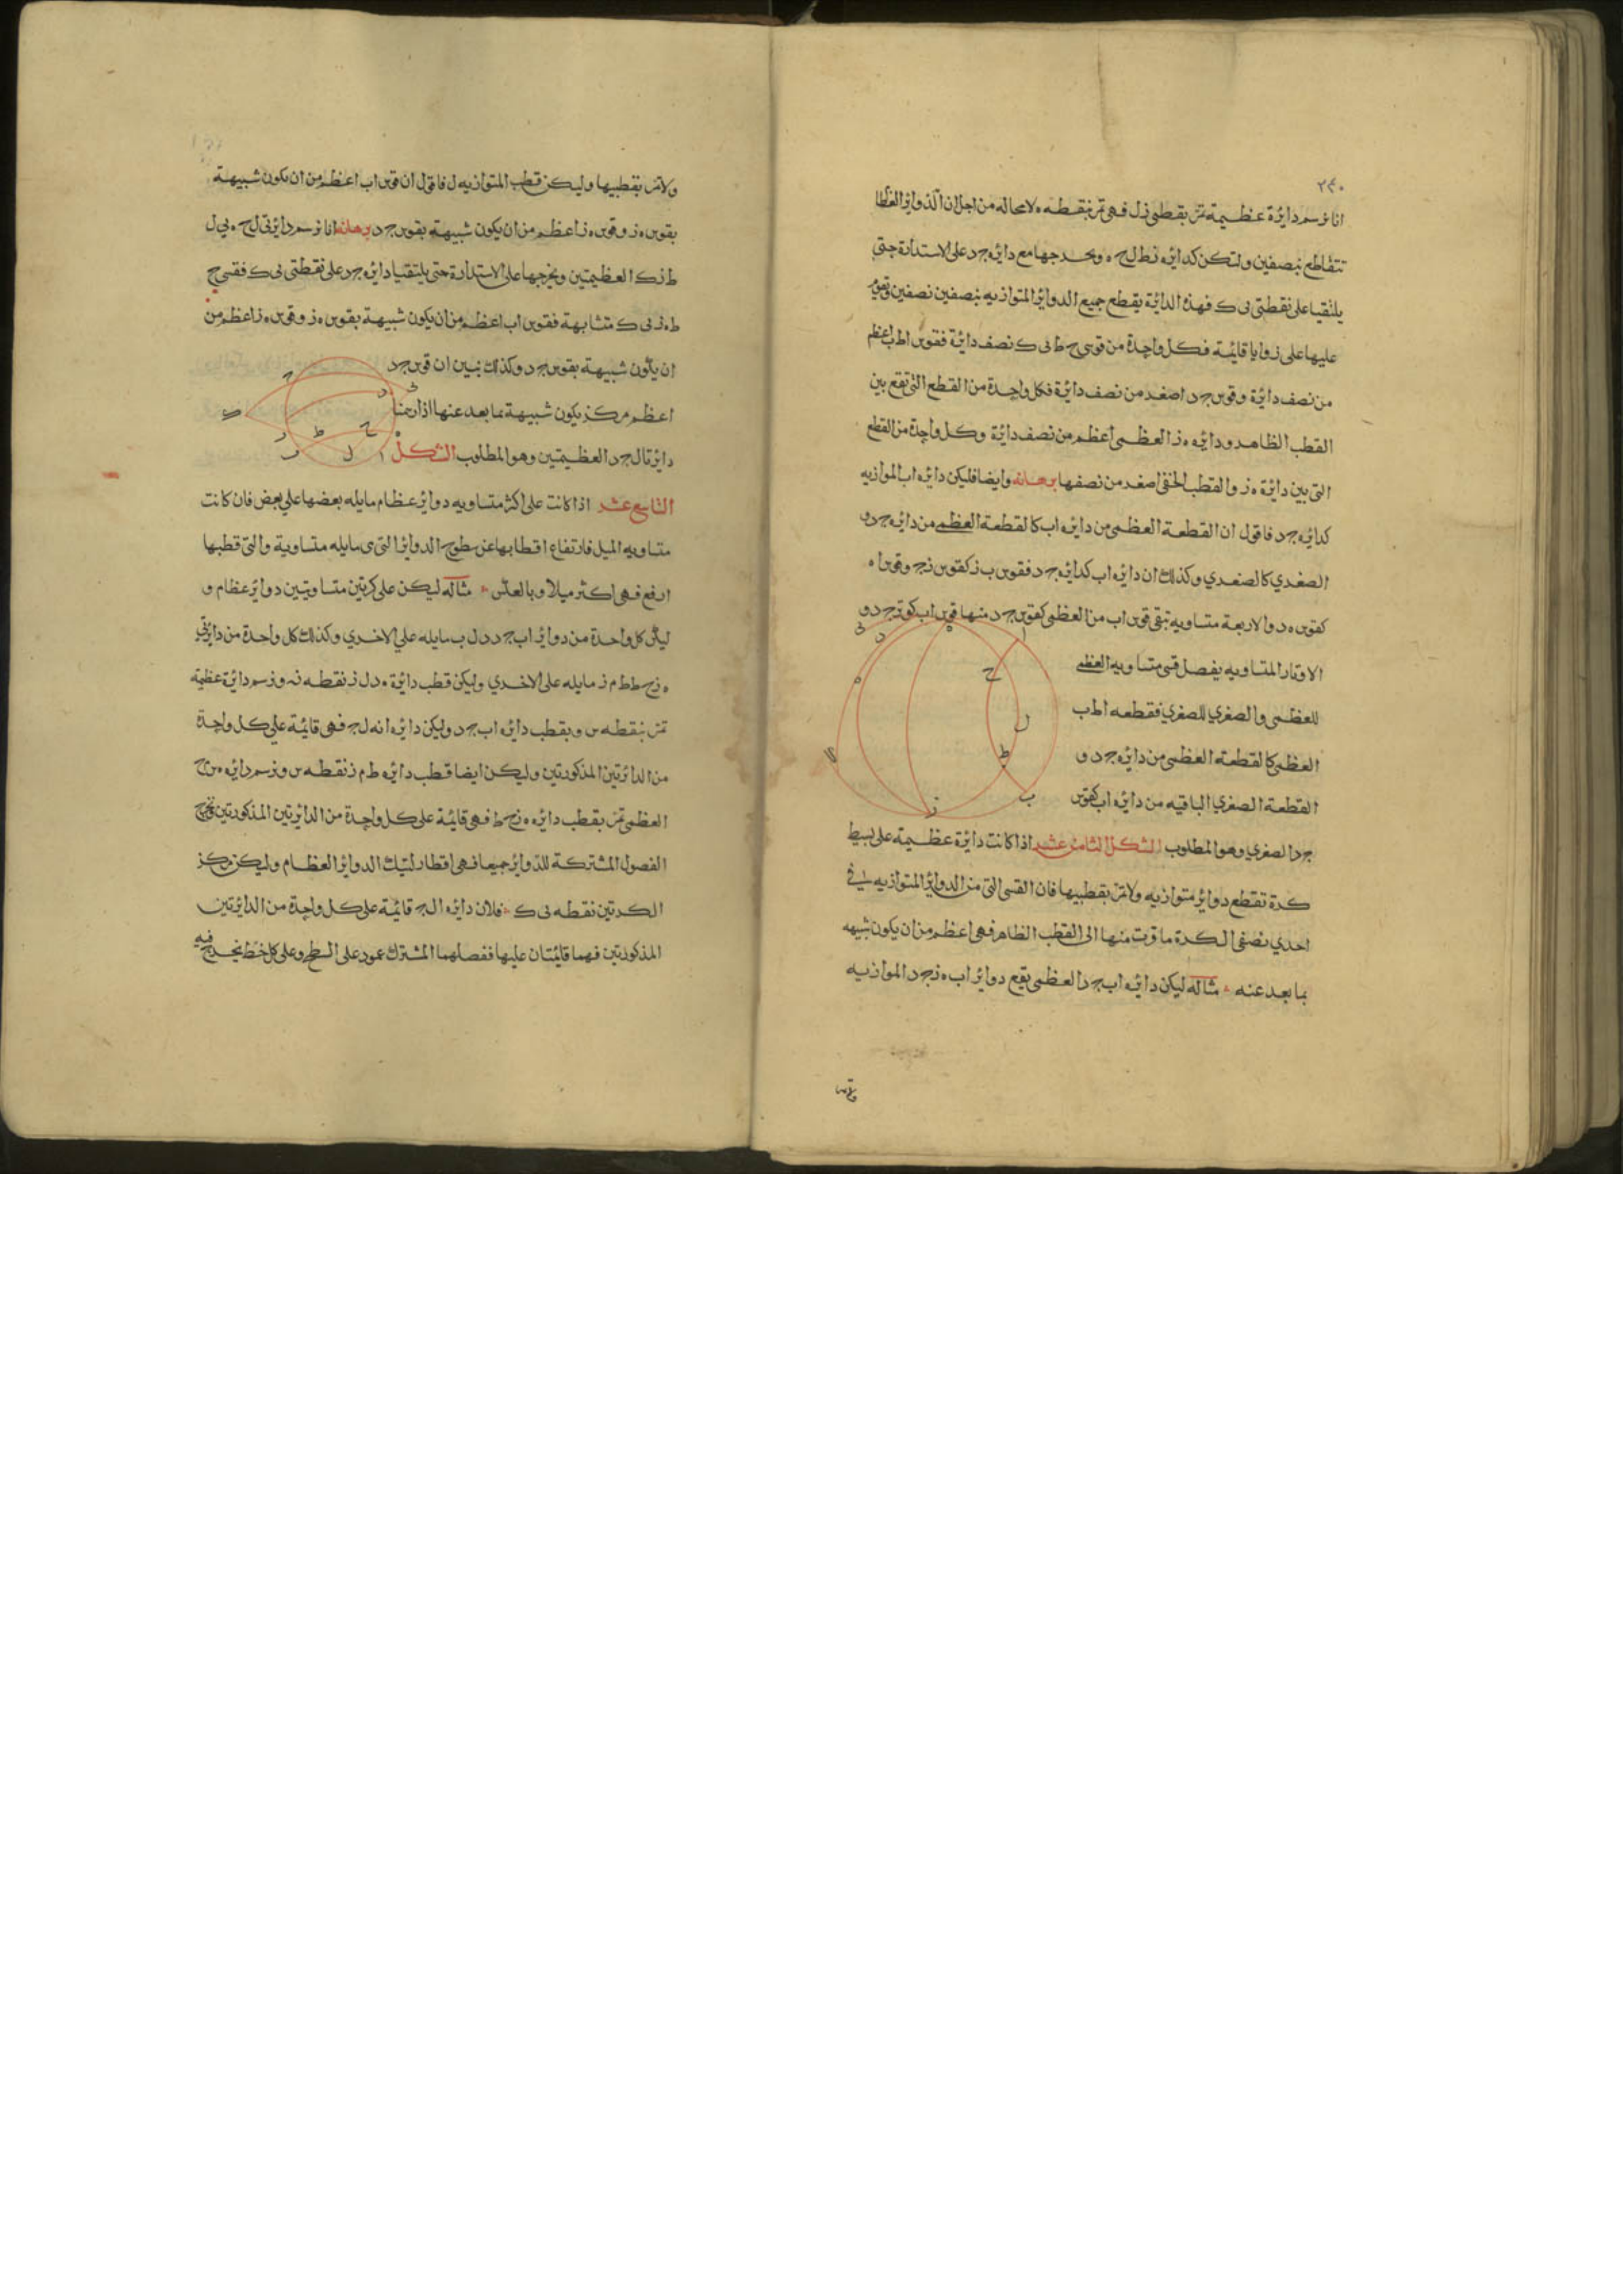 ٢٤٠
انا نرسم دائرة عظيمة تمر بقطبي ز ل فهي تمر بنقطه ه لامحاله من اجل ان الدوائر العظام
تتقاطع بنصفين ولتكن كدائره ز ط ل ح ه ونخرجها مع دائره ج د على الاستدارة حتى
يلتقيا على نقطتي ى ك فهذه الدائرة يقطع جميع الدوائر المتوازيه بنصفين نصفين
عليها على زوايا قائمة فكل واحدة من قوسي ح ط ى ك نصف دائرة فقوس ا ط ب اعظم
من نصف دائرة وقوس ج د اصغر من نصف دائرة فكل واحدة من القطع التي تقع بين
القطب الظاهر ودائره ه ز العظمى اعظم من نصف دائرة وكل واحدة من القطع
التي بين دائرة ه ز والقطب الخفي اصغر من نصفها برهانه وايضا فليكن دائره ا ب الموازيه
كدائره ج د فاقول ان القطعة العظمى من دائره ا ب كالقطعة العظمى من دائره ج د و
الصغري كالصغري وكذلك ان دائره ا ب كدائره ج د فقوس ب ز كقوس ز ج وقوس ا ه
كقوس ه د والاربعة متساويه تبقى قوس ا ب من العظمى كقوس ج د منها فوتر ا ب كوتر ج د و
الاوتار المتساويه يفصل قسي متساويه العظمى
للعظمى والصغري للصغري فقطعه ا ط ب
العظمى كالقطعة العظمى من دائره ج د و
القطعة الصغري الباقيه من دائره ا ب كقوس
ج د الصغري وهو المطلوب الشكل الثامن عشر اذا كانت دائرة عظيمة على بسيط
كرة تقطع دوائر متوازيه ولا تمر بقطبيها فان القسي التي من الدوائر المتوازيه في
احدي نصفي الكرة ما قربت منها الى القطب الظاهر فهي اعظم من ان يكون شبيهه
بما بعد عنه مثاله ليكن دائره ا ب ج د العظمى يقع دوائر ا ب ه ز ج د الموازيه
ولا تمر
ولا تمر بقطبيها وليكن قطب المتوازيه ل فاقول ان قوس ا ب اعظم من ان يكون شبيهة
بقوس ه ز وقوس ه ز اعظم من ان يكون شبيهة بقوس ج د برهانه انا نرسم دائرتي ل ح ه ى ل
ط ز ك العظيمتين ونخرجها على الاستدارة حتى يلتقيا دائره ج د على نقطتي ى ك فقسي ح
ط ه ز ى ك متشابهة فقوس ا ب اعظم من ان يكون شبيهة بقوس ه ز وقوس ه ز اعظم من
ان يكون شبيهة بقوس ج د وكذلك نبين ان قوس ج د
اعظم من ان يكون شبيهة بما بعد عنها اذا رسمنا
دائرتا ل ج د العظيمتين وهو المطلوب الشكل
التاسع عشر اذا كانت على اكر متساويه دوائر عظام مايله بعضها على بعض فان كانت
متساويه الميل فارتفاع اقطابها عن سطوح الدوائر التي هي مايله متساوية والتي قطبها
ارفع فهي اكثر ميلا وبالعكس مثاله ليكن على كرتين متساويتين دوائر عظام و
ليكن كل واحدة من دوائر ا ب ج د د ل ب مايله على الاخري وكذلك كل واحدة من دائرتي
ه ز ح ط ط م ز مايله على الاخري وليكن قطب دائرة ه د ل ز نقطه نه ونرسم دائرة عظيمة
تمر بنقطه س وبقطب دائره ا ب ج د وليكن دائره ا نه ل ج فهي قائمة على كل واحدة
من الدائرتين المذكورتين وليكن ايضا قطب دائره ط م ز نقطه س ونرسم دائره ه س ح
العظمى تمر بقطب دائره ه ز ح ط فهي قائمة على كل واحدة من الدائرتين المذكورتين ونخرج
الفصول المشتركة للدوائر جميعا فهي اقطار لتيك الدوائر العظام وليكن مركز
الكرتين نقطه ى ك فلان دائره ا ل ج قائمة على كل واحدة من الدائرتين
المذكورتين فهما قائمتان عليها ففصلهما المشترك عمود على السطح وعلى كل خط يخرج فيه